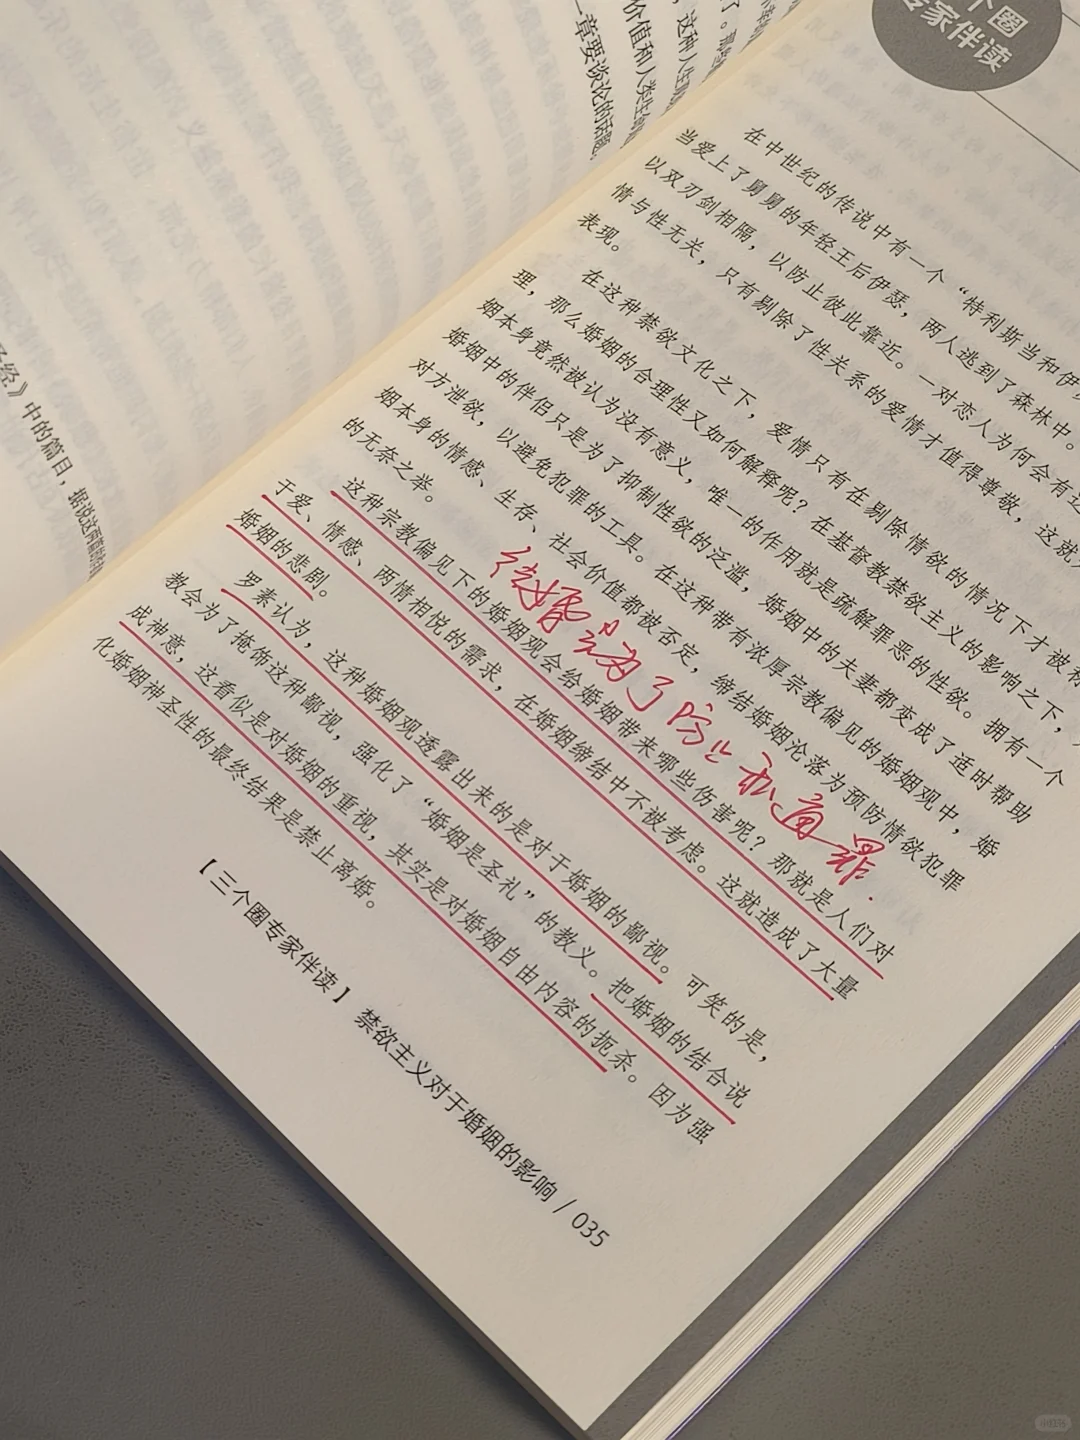 了。那些
，这种人生
价值和人类生命
一章要谈论的话题。
圣经》中的篇目，据说这两篇
个圈
专家伴读
在中世纪的传说中有一个“特利斯当和伊
当爱上了舅舅的年轻王后伊瑟，两人逃到了森林中。
以双刃剑相隔，以防止彼此靠近。一对恋人为何会有这
情与性无关，只有剔除了性关系的爱情才值得尊敬，这就
表现。
在这种禁欲文化之下，爱情只有在剔除情欲的情况下才被称
理，那么婚姻的合理性又如何解释呢？在基督教禁欲主义的影响之下，
姻本身竟然被认为没有意义，唯一的作用就是疏解罪恶的性欲。拥有一个
婚姻中的伴侣只是为了抑制性欲的泛滥，婚姻中的夫妻都变成了适时帮助
对方泄欲，以避免犯罪的工具。在这种带有浓厚宗教偏见的婚姻观中，婚
姻本身的情感、生存、社会价值都被否定，缔结婚姻沦落为预防情欲犯罪
的无奈之举。
结婚是为了防止私通罪.
这种宗教偏见下的婚姻观会给婚姻带来哪些伤害呢？那就是人们对
于爱、情感、两情相悦的需求，在婚姻缔结中不被考虑。这就造成了大量
婚姻的悲剧。
罗素认为，这种婚姻观透露出来的是对于婚姻的鄙视。可笑的是，
教会为了掩饰这种鄙视，强化了“婚姻是圣礼”的教义。把婚姻的结合说
成神意，这看似是对婚姻的重视，其实是对婚姻自由内容的扼杀。因为强
化婚姻神圣性的最终结果是禁止离婚。
【三个圈专家伴读】 禁欲主义对于婚姻的影响 / 035
小红书